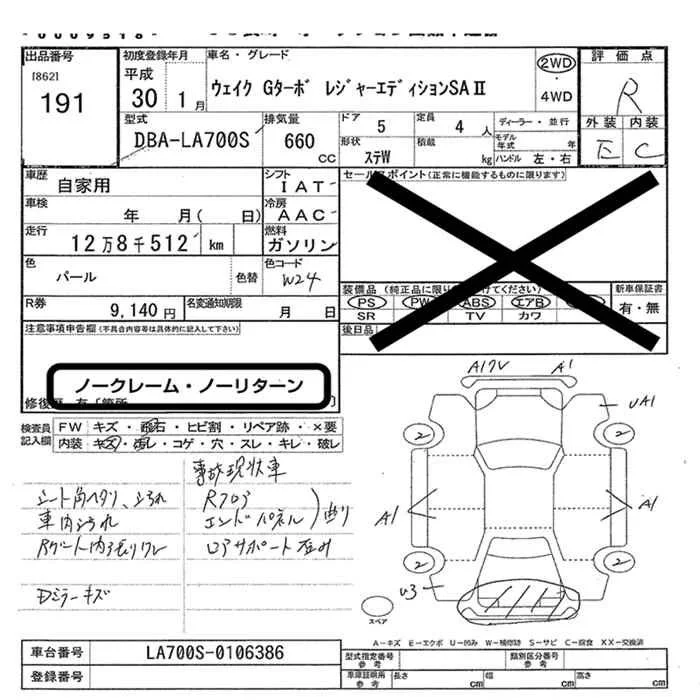 出品番号
[862]
191
初度登録年月
平成
30 1月
車名・グレード
ウェイク Gターボ レジャーエディションSAⅡ
2WD
・
4WD
評価点
R
外装 内装
E C
型式
DBA-LA700S
排気量
660
CC
ドア 5
定員 4人
ディーラー・並行
モデル年式 年
形状 ステW
積載 kg
ハンドル 左・右
車歴
自家用
シフト
IAT
セールスポイント(正常に機能するものに限ります)
車検
年 月( 日)
冷房
AAC
走行
12万8千512 km
燃料
ガソリン
色
パール
色替
色コード
W24
装備品(純正品に限り
けてください)
新車保証書
有・無
PS PW ABS エアB
SR TV カワ
R券
9,140円
名変通知期限
月 日
後日品
注意事項申告欄(不具合内容等は具体的に記入して下さい)
ノークレーム・ノーリターン
修復歴
検査員
記入欄
FW キズ・飛石・ヒビ割・リペア跡・×要
内装 キズ・汚レ・コゲ・穴・スレ・キレ・破レ
事故現状車
シート角ヘタリ、シミ汚れ
Rフロア
車内シミ汚れ
エンドパネル 曲り
Rゲート内張りワレ
ロアサポート歪み
Dミラーキズ
A17V A1
UA1
2 2
A1 A1
2 2
U3
スペア
A-キズ E-エクボ U-凹み W-補修跡 S-サビ C-腐食 XX-交換済
車台番号
LA700S-0106386
登録番号
型式指定番号
参考
類別区分番号
参考
車庫証明用
参考
長さ cm
幅 cm
高さ cm